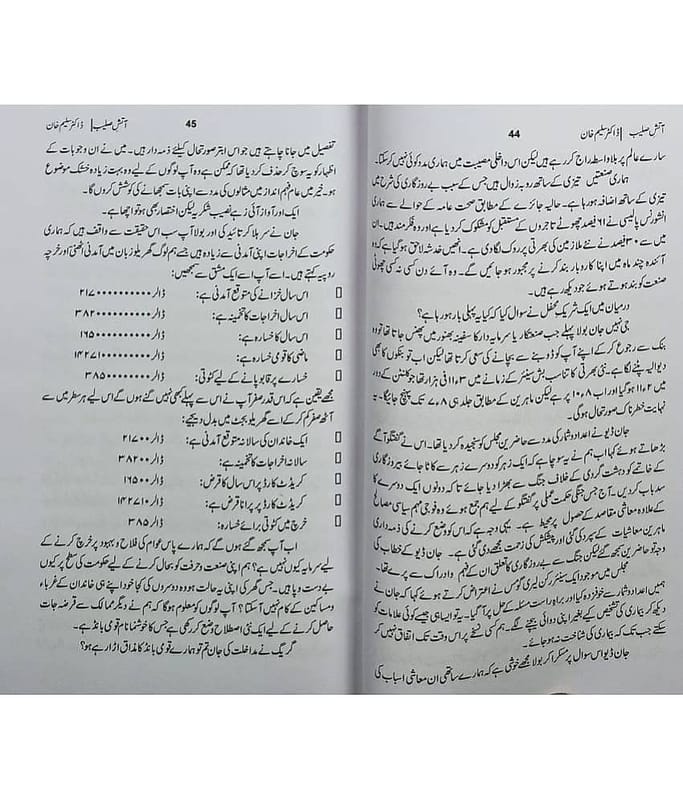 44
آتش صلیب | ڈاکٹر سلیم خان
سارے عالم پر بلاواسطہ راج کر رہے ہیں لیکن اس داخلی مصیبت میں ہماری مدد کوئی نہیں کر سکتا۔
ہماری صنعتیں تیزی کے ساتھ روبہ زوال ہیں جس کے سبب بے روزگاری کی شرح میں
تیزی کے ساتھ اضافہ ہو رہا ہے۔ حالیہ جائزے کے مطابق صحت عامہ کے حوالے سے ہماری
انشورنس پالیسی نے ۶۱ فیصد چھوٹے تاجروں کے مستقبل کو مشکوک کر دیا ہے اور وہ فکرمند ہیں۔ ان
میں سے ۳۰ فیصد نے نئے ملازمین کی بھرتی پر روک لگا دی ہے۔ انھیں خدشہ لاحق ہو گیا ہے کہ وہ
آئندہ چند ماہ میں اپنا کاروبار بند کرنے پر مجبور ہو جائیں گے۔ وہ آئے دن کسی نہ کسی چھوٹی
صنعت کو بند ہوتے ہوئے جو دیکھ رہے ہیں۔
درمیان میں ایک شریک محفل نے سوال کیا کہ کیا یہ پہلی بار ہو رہا ہے؟
جی نہیں جان بولا پہلے جب صنعتکار یا سرمایہ دار کا سفینہ بھنور میں پھنس جاتا تھا تو وہ
بنک سے رجوع کر کے اپنے آپ کو ڈوبنے سے بچانے کی سعی کرتا تھا لیکن اب تو بنکوں کا بھی
دیوالیہ پٹنے لگا ہے۔ نئی بھرتی کا تناسب بش سینئر کے زمانے میں ۱۱ء۳ فی ہزار تھا جو کلنٹن کے دور
میں ۱۱ء۲ ہو گیا اور اب ۱۰ء۸ پر ہے لیکن ماہرین کے مطابق جلد ہی ۷ء۸ تک پہنچ جائیگا۔ یہ
نہایت خطرناک صورتحال ہو گی۔
جان ڈیو نے اعداد و شمار کی مدد سے حاضرین مجلس کو سنجیدہ کر دیا تھا۔ اس نے گفتگو آگے
بڑھاتے ہوئے کہا اب ہم نے یہ سوچا ہے کہ ایک زہر کو دوسرے زہر سے کاٹا جائے بیروزگاری
کے خاتمے کو دہشت گردی کے خلاف جنگ سے بھڑا دیا جائے تا کہ دونوں ایک دوسرے کا
سدباب کر دیں۔ آج جس جنگی حکمت عملی پر گفتگو کے لیے ہم جمع ہوئے ہیں وہ فوجی مہم سیاسی مصالح
کے علاوہ معاشی مقاصد کے حصول پر محیط ہے۔ یہی وجہ ہے کہ اس کو وضع کرنے کی ذمہ داری
ماہرین معاشیات کے سپرد کی گئی اور پیشکش کی زحمت مجھے دی گئی ہے۔ جان ڈیو کے خطاب کی
وجہ تو حاضرین سمجھ گئے لیکن جنگ سے بے روزگاری کا تعلق ان کے فہم و ادراک سے پرے تھا۔
مجلس میں موجود ایک سینئر رکن لیری گومس نے اعتراض کرتے ہوئے کہا کہ جان نے
ہمیں اعداد و شمار سے خوفزدہ کیا اور براہ راست مسئلہ کے حل پر آ گیا۔ یہ تو ایسا ہی جیسے کوئی علامات کو
دیکھ کر بیماری کی تشخیص کیے بغیر اپنی دوائی بیچنے لگے۔ ہم کسی نسخے پر اس وقت تک اتفاق نہیں کر
سکتے جب تک کہ بیماری کی شناخت نہ ہو جائے۔
جان ڈیو اس سوال پر مسکرا کر بولا مجھے خوشی ہے کہ ہمارے ساتھی ان معاشی اسباب کی
45
آتش صلیب | ڈاکٹر سلیم خان
تفصیل میں جانا چاہتے ہیں جو اس ابتر صورتحال کیلئے ذمہ دار ہیں۔ میں نے ان وجوہات کے
اظہار کو یہ سوچ کر حذف کر دیا تھا کہ ممکن ہے وہ آپ لوگوں کے لیے وہ بہت زیادہ خشک موضوع
ہو۔ خیر میں عام فہم انداز میں مثالوں کی مدد سے اپنی بات سمجھانے کی کوشش کروں گا۔
ایک اور آواز آئی زہے نصیب شکریہ لیکن اختصار بھی ہو تو اچھا ہے۔
جان نے سر ہلا کر تائید کی اور بولا آپ سب اس حقیقت سے واقف ہیں کہ ہماری
حکومت کے اخراجات اپنی آمدنی سے زیادہ ہے جسے ہم لوگ گھریلو زبان میں آمدنی اٹھنی اور خرچہ
روپیہ کہتے ہیں۔ اسے آپ اسے ایک مشق سے سمجھیں:
اس سال خزانے کی متوقع آمدنی ہے: ڈالر ۲۱۷۰۰۰۰۰۰۰۰۰۰
اس سال اخراجات کا تخمینہ ہے: ڈالر ۳۸۲۰۰۰۰۰۰۰۰۰۰
اس سال کا خسارہ ہے: ڈالر ۱۶۵۰۰۰۰۰۰۰۰۰۰
ماضی کا قومی خسارہ ہے: ڈالر ۱۴۲۷۱۰۰۰۰۰۰۰۰۰
خسارے پر قابو پانے کے لیے کٹوتی: ڈالر ۳۸۵۰۰۰۰۰۰۰۰
مجھے یقین ہے کہ اس قدر صفر آپ نے اس سے پہلے کبھی نہیں گنے ہوں گے اس لیے ہر سطر میں سے
آٹھ صفر کم کر کے اسے گھریلو بجٹ میں بدل دیجیے:
ایک خاندان کی سالانہ متوقع آمدنی ہے: ڈالر ۲۱۷۰۰
سالانہ اخراجات کا تخمینہ ہے: ڈالر ۳۸۲۰۰
کریڈٹ کارڈ پر اس سال کا قرض: ڈالر ۱۶۵۰۰
کریڈٹ کارڈ پر پرانا قرض ہے: ڈالر ۱۴۲۷۱۰
خرچ میں کٹوتی برائے خسارہ: ڈالر ۳۸۵
اب آپ سمجھ گئے ہوں گے کہ ہمارے پاس عوام کی فلاح و بہبود پر خرچ کرنے کے
لیے سرمایہ کیوں نہیں ہے؟ ہم اپنی صنعت و حرفت کو بحال کرنے کے لیے حکومت کی سطح پر کیوں
بے دست و پا ہیں۔ جس گھر کی اپنی یہ حالت ہو وہ دوسروں کی کجا خود اپنے ہی خاندان کے غرباء
و مساکین کے کام نہیں آ سکتا؟ آپ لوگوں کو معلوم ہو گا کہ ہم نے دیگر ممالک سے قرضہ جات
حاصل کرنے کے لیے ایک نئی اصطلاح وضع کر رکھی ہے جس کا خوشنما نام قومی بانڈ ہے۔
گریگ نے مداخلت کی جان تم تو ہمارے قومی بانڈ کا مذاق اڑا رہے ہو؟